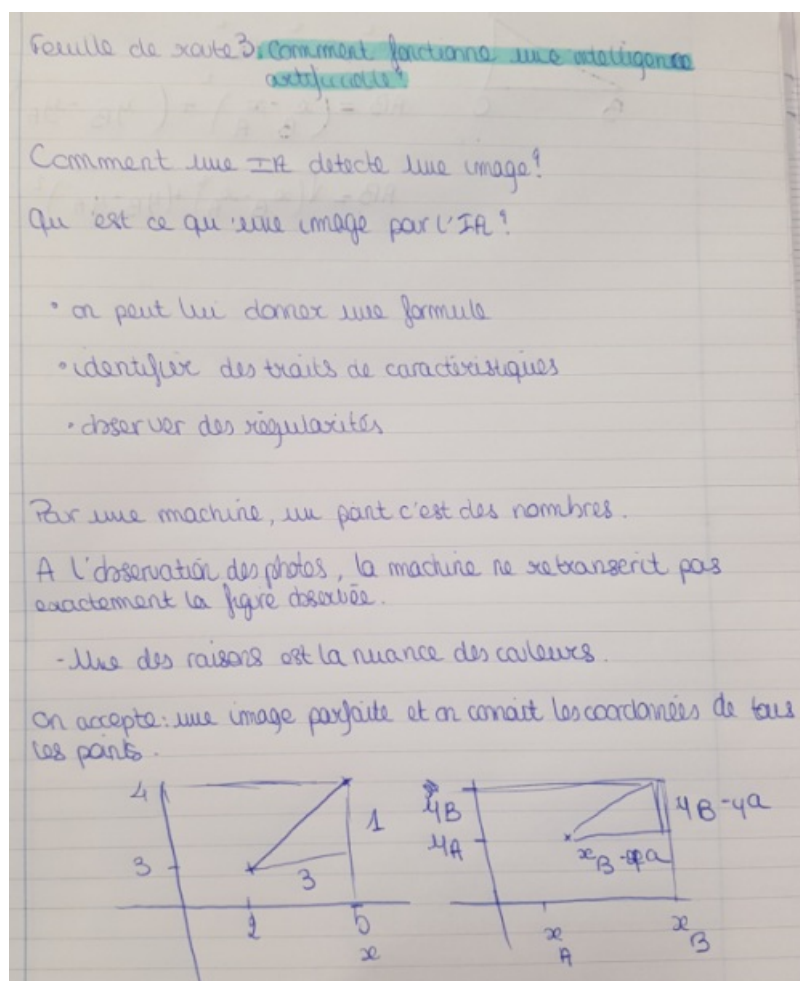 Feuille de route 3: Comment fonctionne une intelligence
artificielle?
Comment une IA detecte une image?
Qu'est ce qu'une image par l'IA?
• on peut lui donner une formule
• identifier des traits de caractéristiques
• observer des régularités
Par une machine, un point c'est des nombres.
A l'observation des photos, la machine ne retranscrit pas
exactement la figre observée.
- Une des raisons est la nuance des couleurs.
On accepte: une image parfaite et on connait les coordonnées de tous
les points.
4
3
1
3
2
5
x
yB
yA
yB-ya
xB-xa
xA
xB